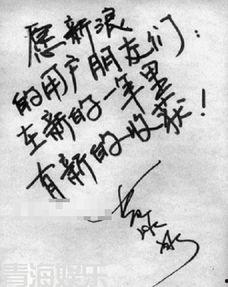 愿新浪
的用户朋友们:
在新的一年里
有新的收获!
青海娱乐